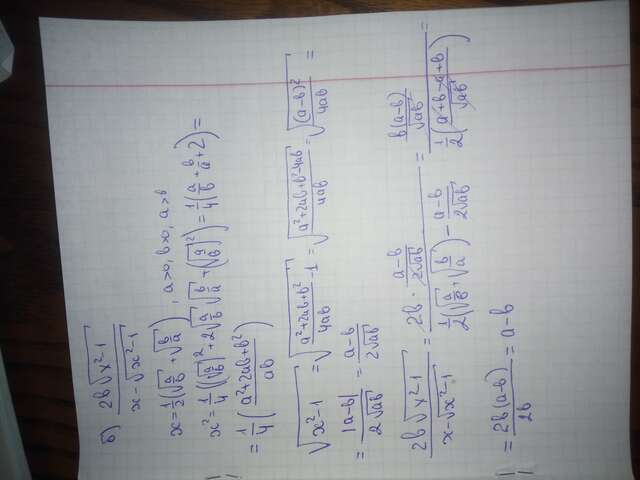 б) 2b√(x²-1) / (x-√(x²-1))
x = 1/2(√(a/b) + √(b/a)), a>0, b>0, a>b
x² = 1/4((√(a/b))² + 2√(a/b)√(b/a) + (√(b/a))²) = 1/4(a/b + b/a + 2) =
= 1/4((a²+2ab+b²)/ab)
√(x²-1) = √((a²+2ab+b²)/4ab - 1) = √((a²+2ab+b²-4ab)/4ab) = √((a-b)²/4ab) =
= |a-b|/2√(ab) = (a-b)/2√(ab)
2b√(x²-1) / (x-√(x²-1)) = 2b · (a-b)/2√(ab) / (1/2(√(a/b) + √(b/a)) - (a-b)/2√(ab)) = b(a-b)/√(ab) / (1/2((a+b-a+b)/√(ab))) =
= 2b(a-b)/2b = a-b